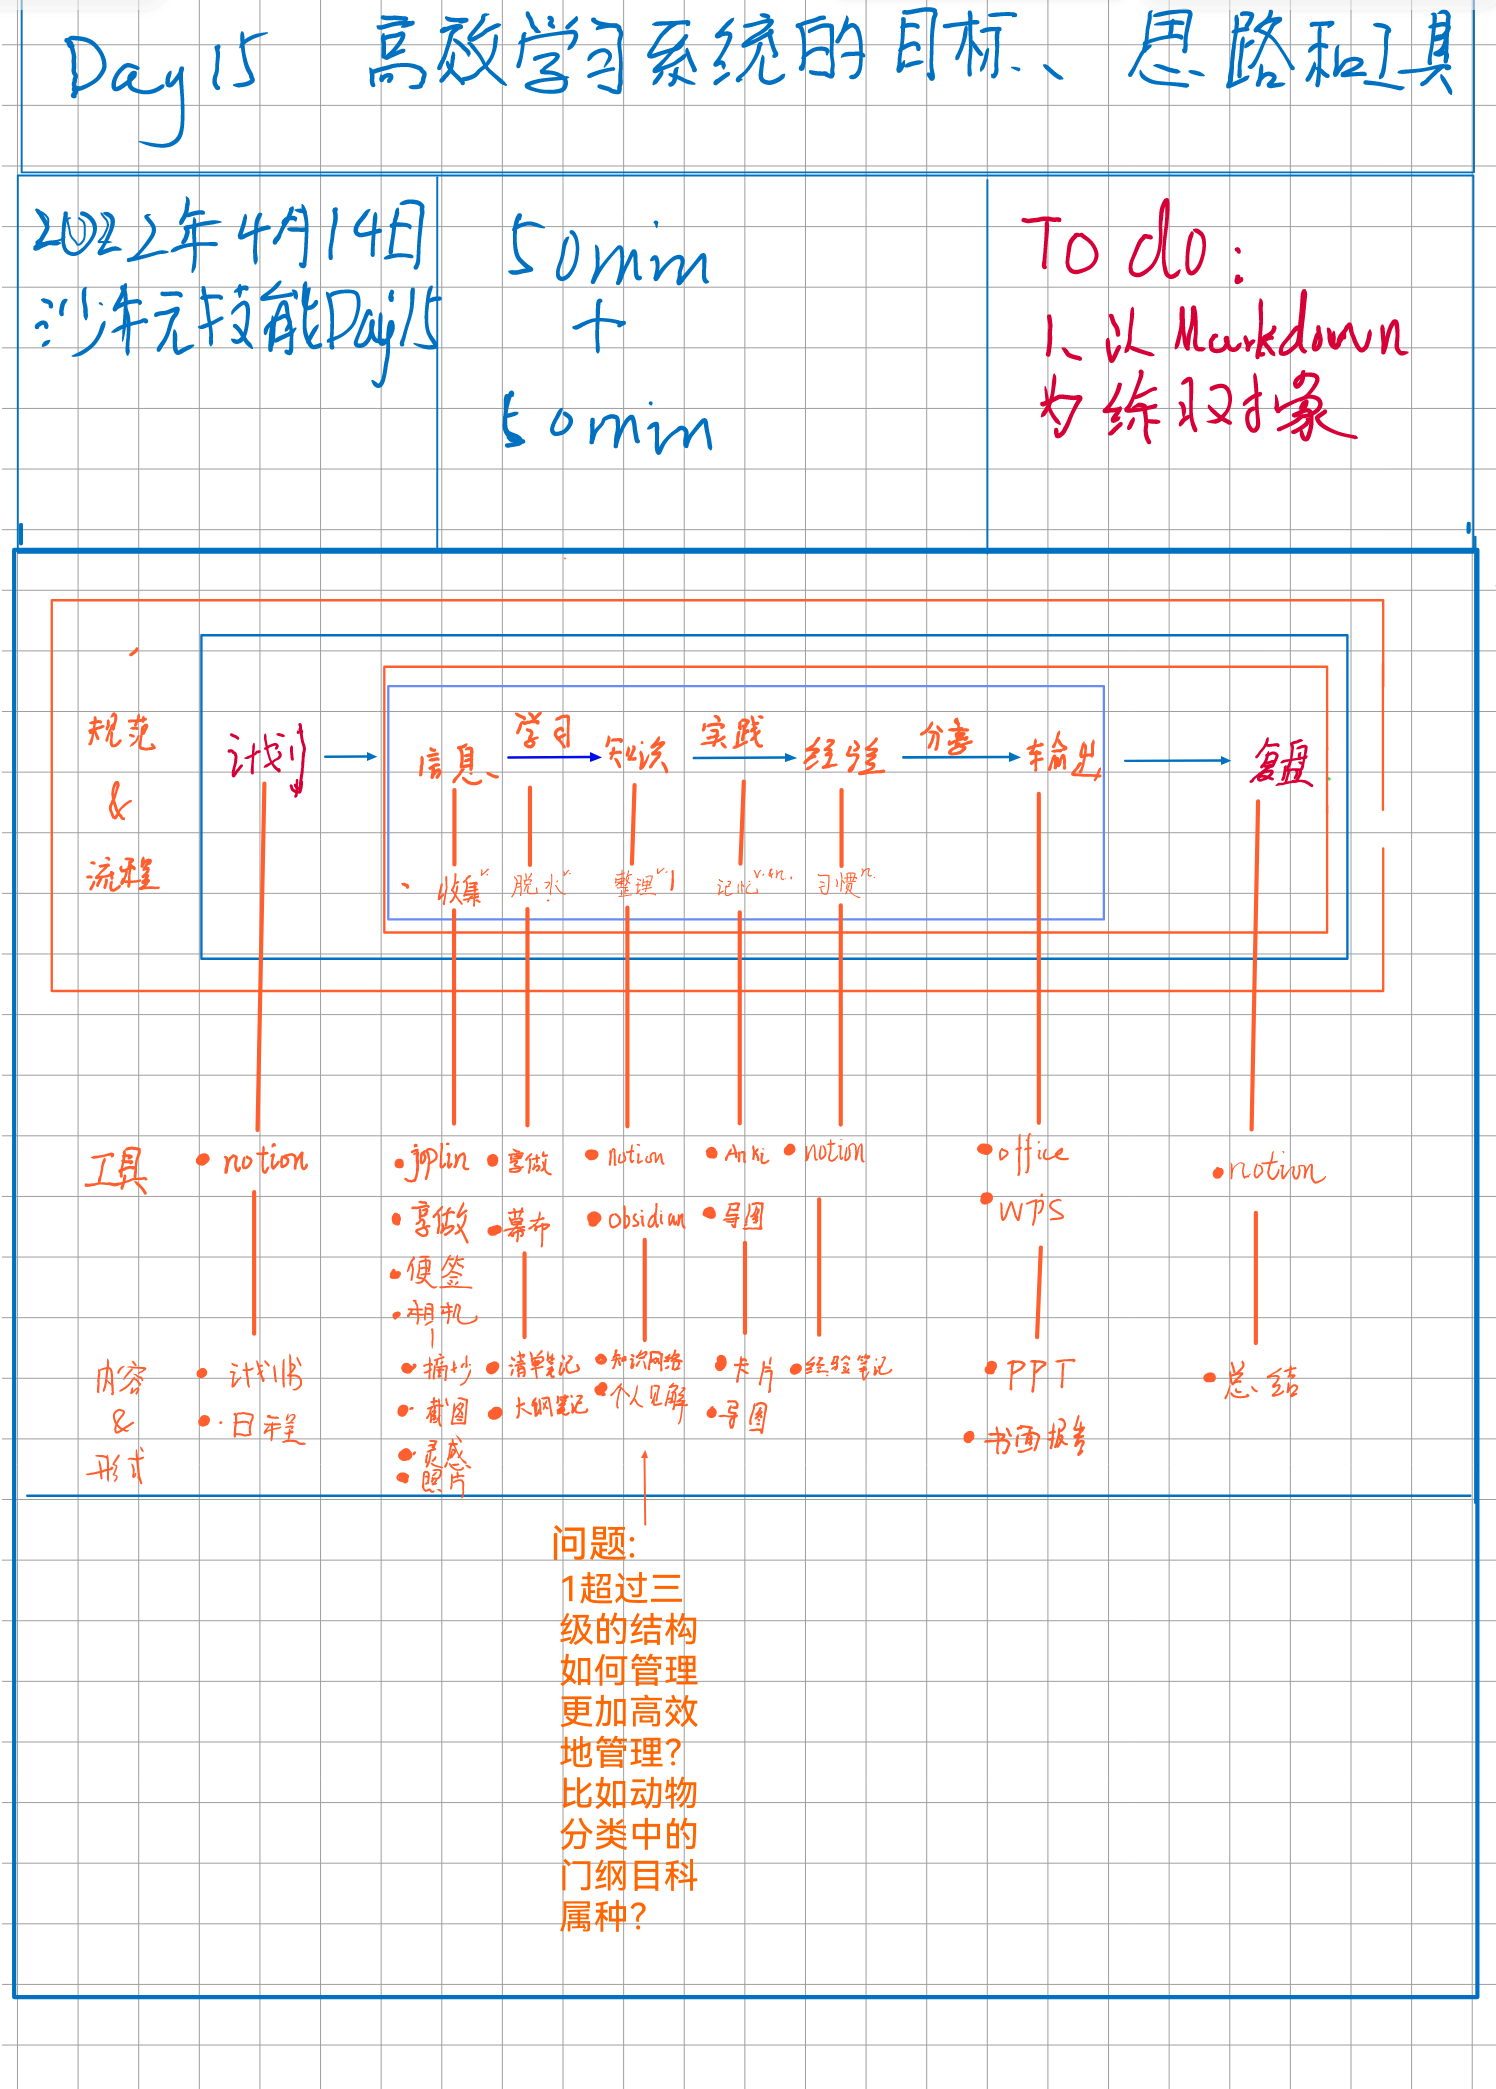 Day 15 高效学习系统的目标、思路和工具
2022年4月14日
沙牛元技能Day15
50min
+
50min
To do:
1、以Markdown
为练习对象
规范
&
流程
计划
信息
学习
知识
实践
经验
分享
输出
复盘
收集v.
脱水v.
整理v.
记忆v.&n.
习惯n.
工具
notion
joplin
享做
便签
相机
享做
幕布
notion
obsidian
Anki
导图
notion
office
WPS
notion
内容
&
形式
计划书
日程
摘抄
截图
灵感
照片
清单笔记
大纲笔记
知识网络
个人见解
卡片
导图
经验笔记
PPT
书面报告
总结
问题:
1超过三
级的结构
如何管理
更加高效
地管理?
比如动物
分类中的
门纲目科
属种?